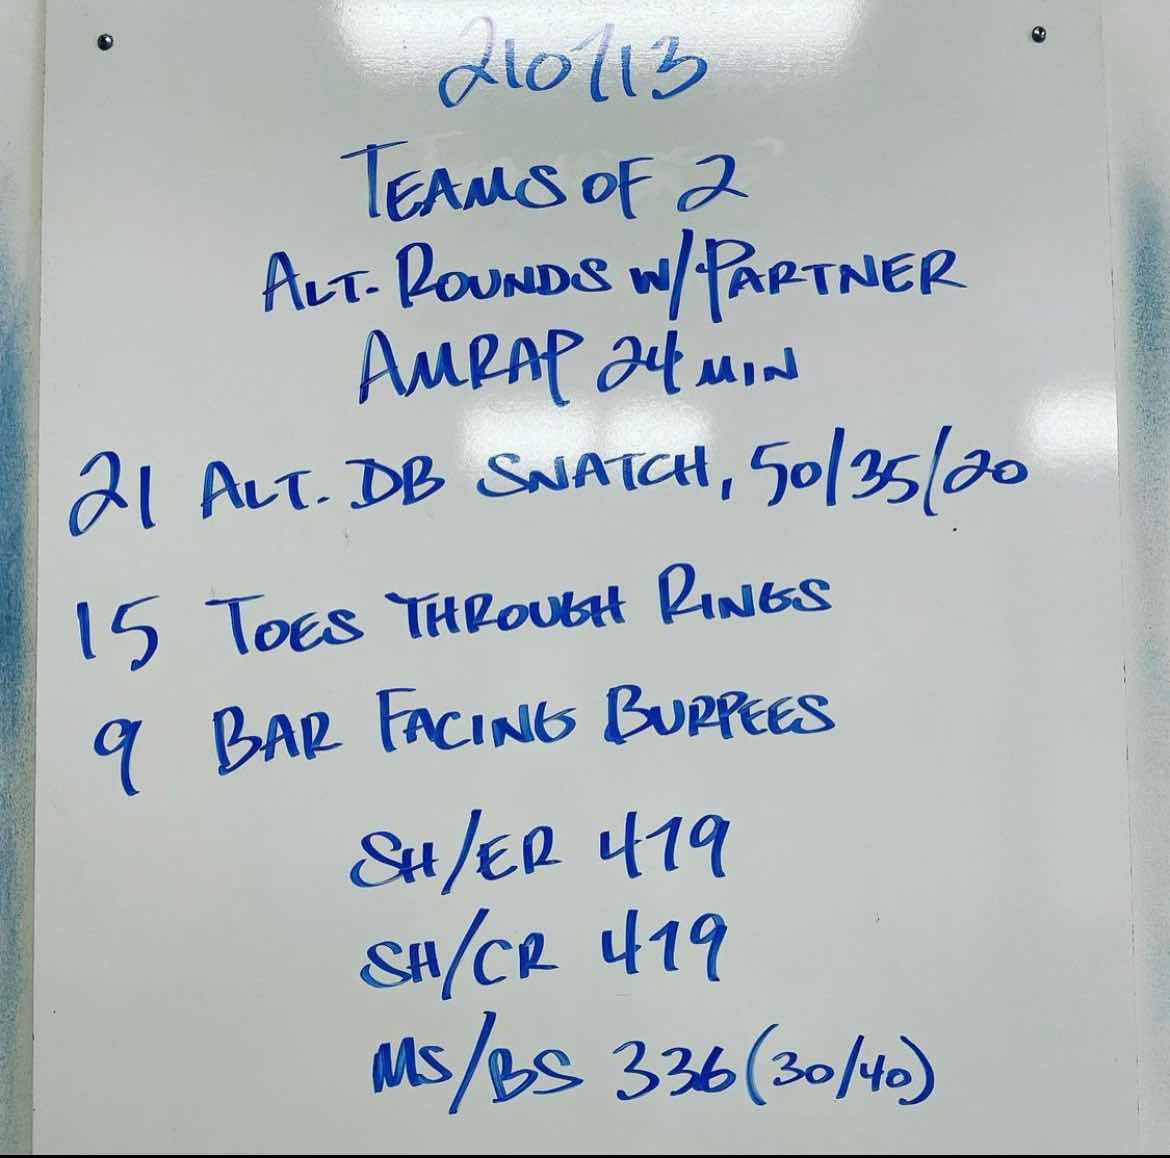 210713
TEAMS OF 2
ALT. ROUNDS W/PARTNER
AMRAP 24 MIN
21 ALT. DB SNATCH, 50/35/20
15 TOES THROUGH RINGS
9 BAR FACING BURPEES
SH/ER 419
SH/CR 419
MS/BS 336 (30/40)